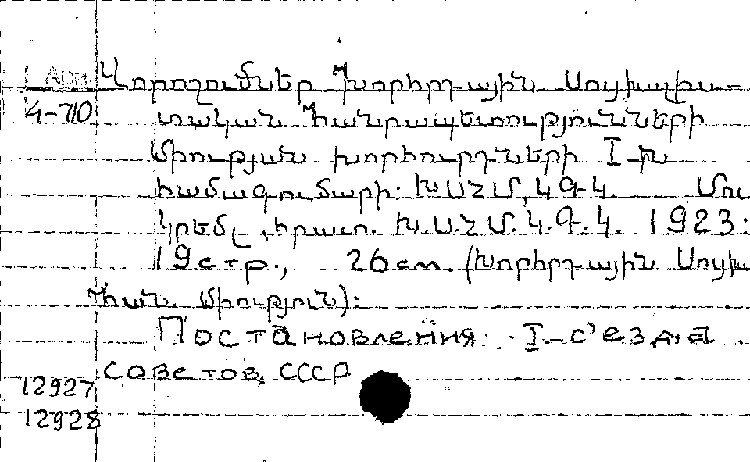 Арм Որոշումներ Խորհրդային Սոցիալիս-
4-710 տական Հանրապետությունների
Միության խորհուրդների I-ին
համագումարի: Խ.Ս.Հ.Մ.Կ.Գ.Կ. Մոս
Կրեմլ, հրատ. Խ.Ս.Հ.Մ.Կ.Գ.Կ. 1923:
19 стр., 26 см. (Խորհրդային Սոցիա
Հան. Միություն):
Постановления I-с'езда
советов СССР
12927
12928